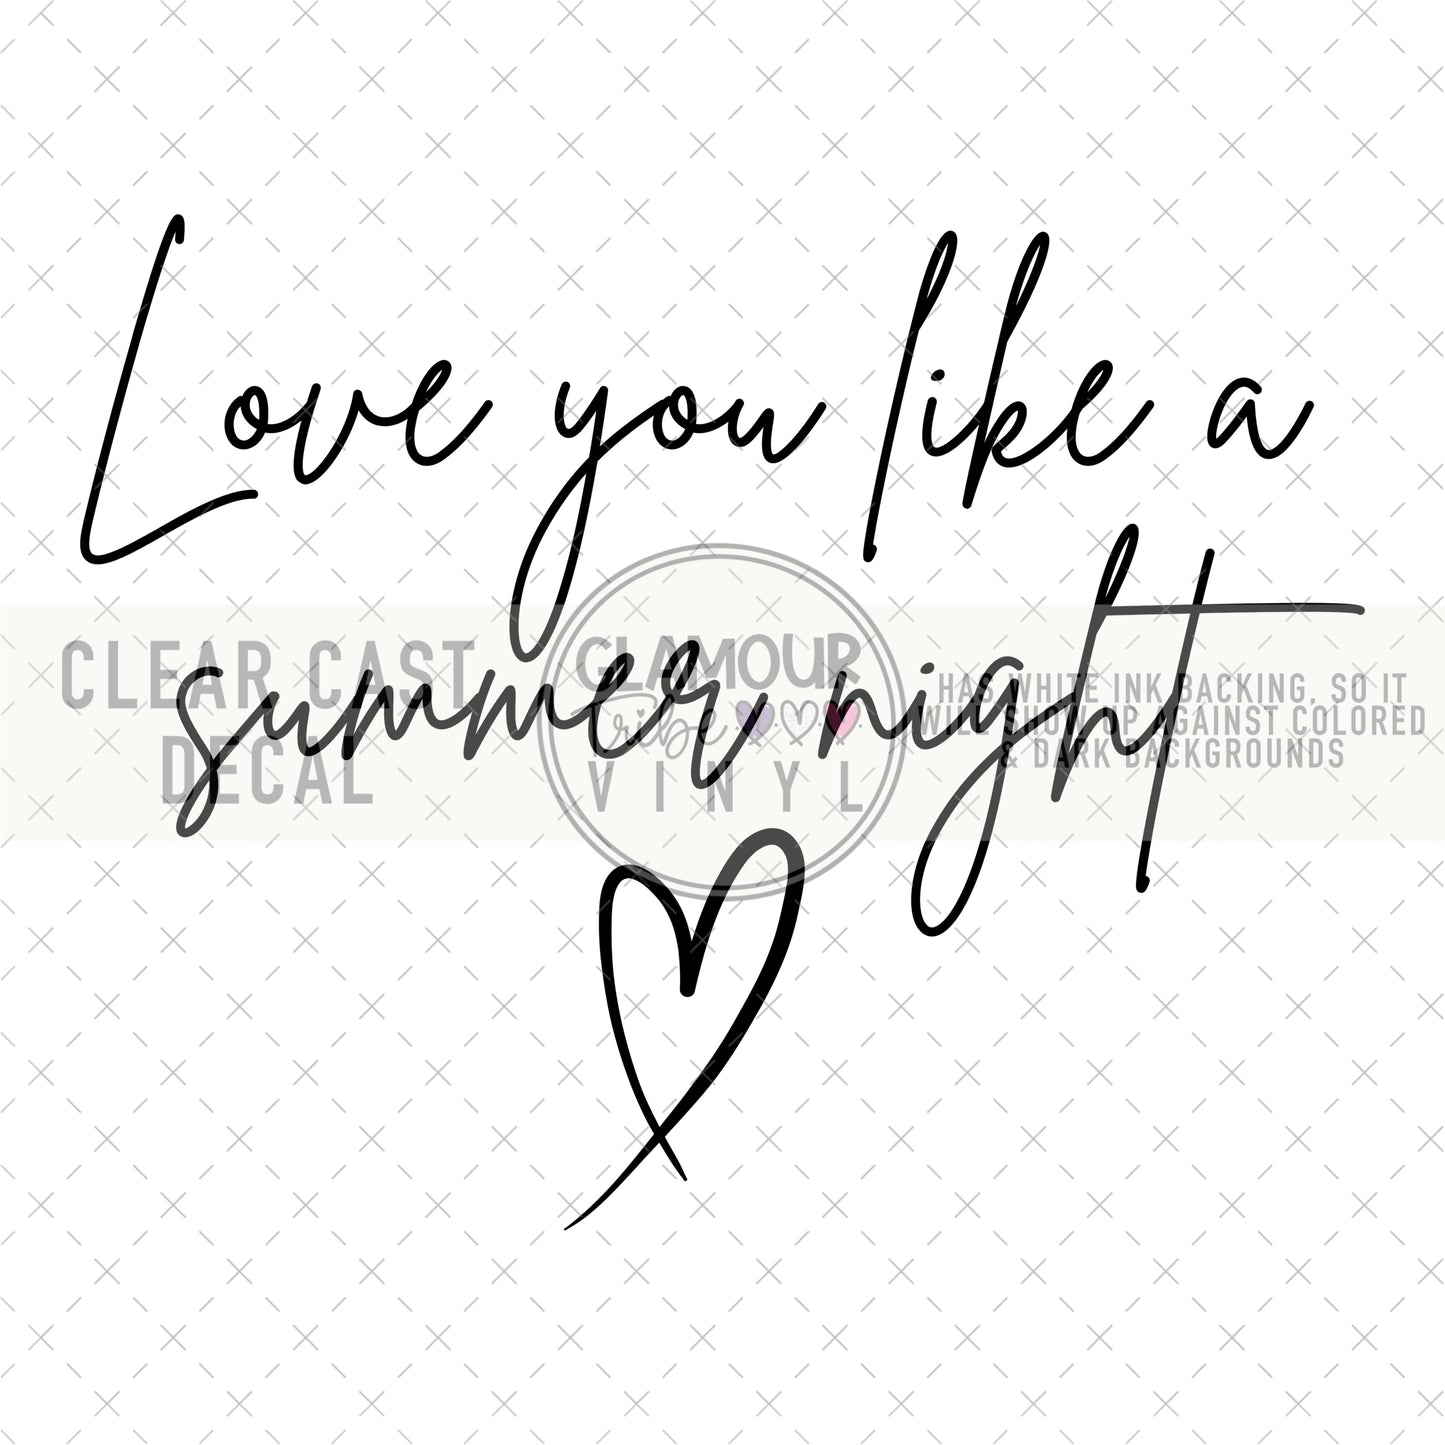 Love you like a
summer night
CLEAR CAST
DECAL
GLAMOUR
tribe
VINYL
HAS WHITE INK BACKING, SO IT
WILL SHOW UP AGAINST COLORED
& DARK BACKGROUNDS